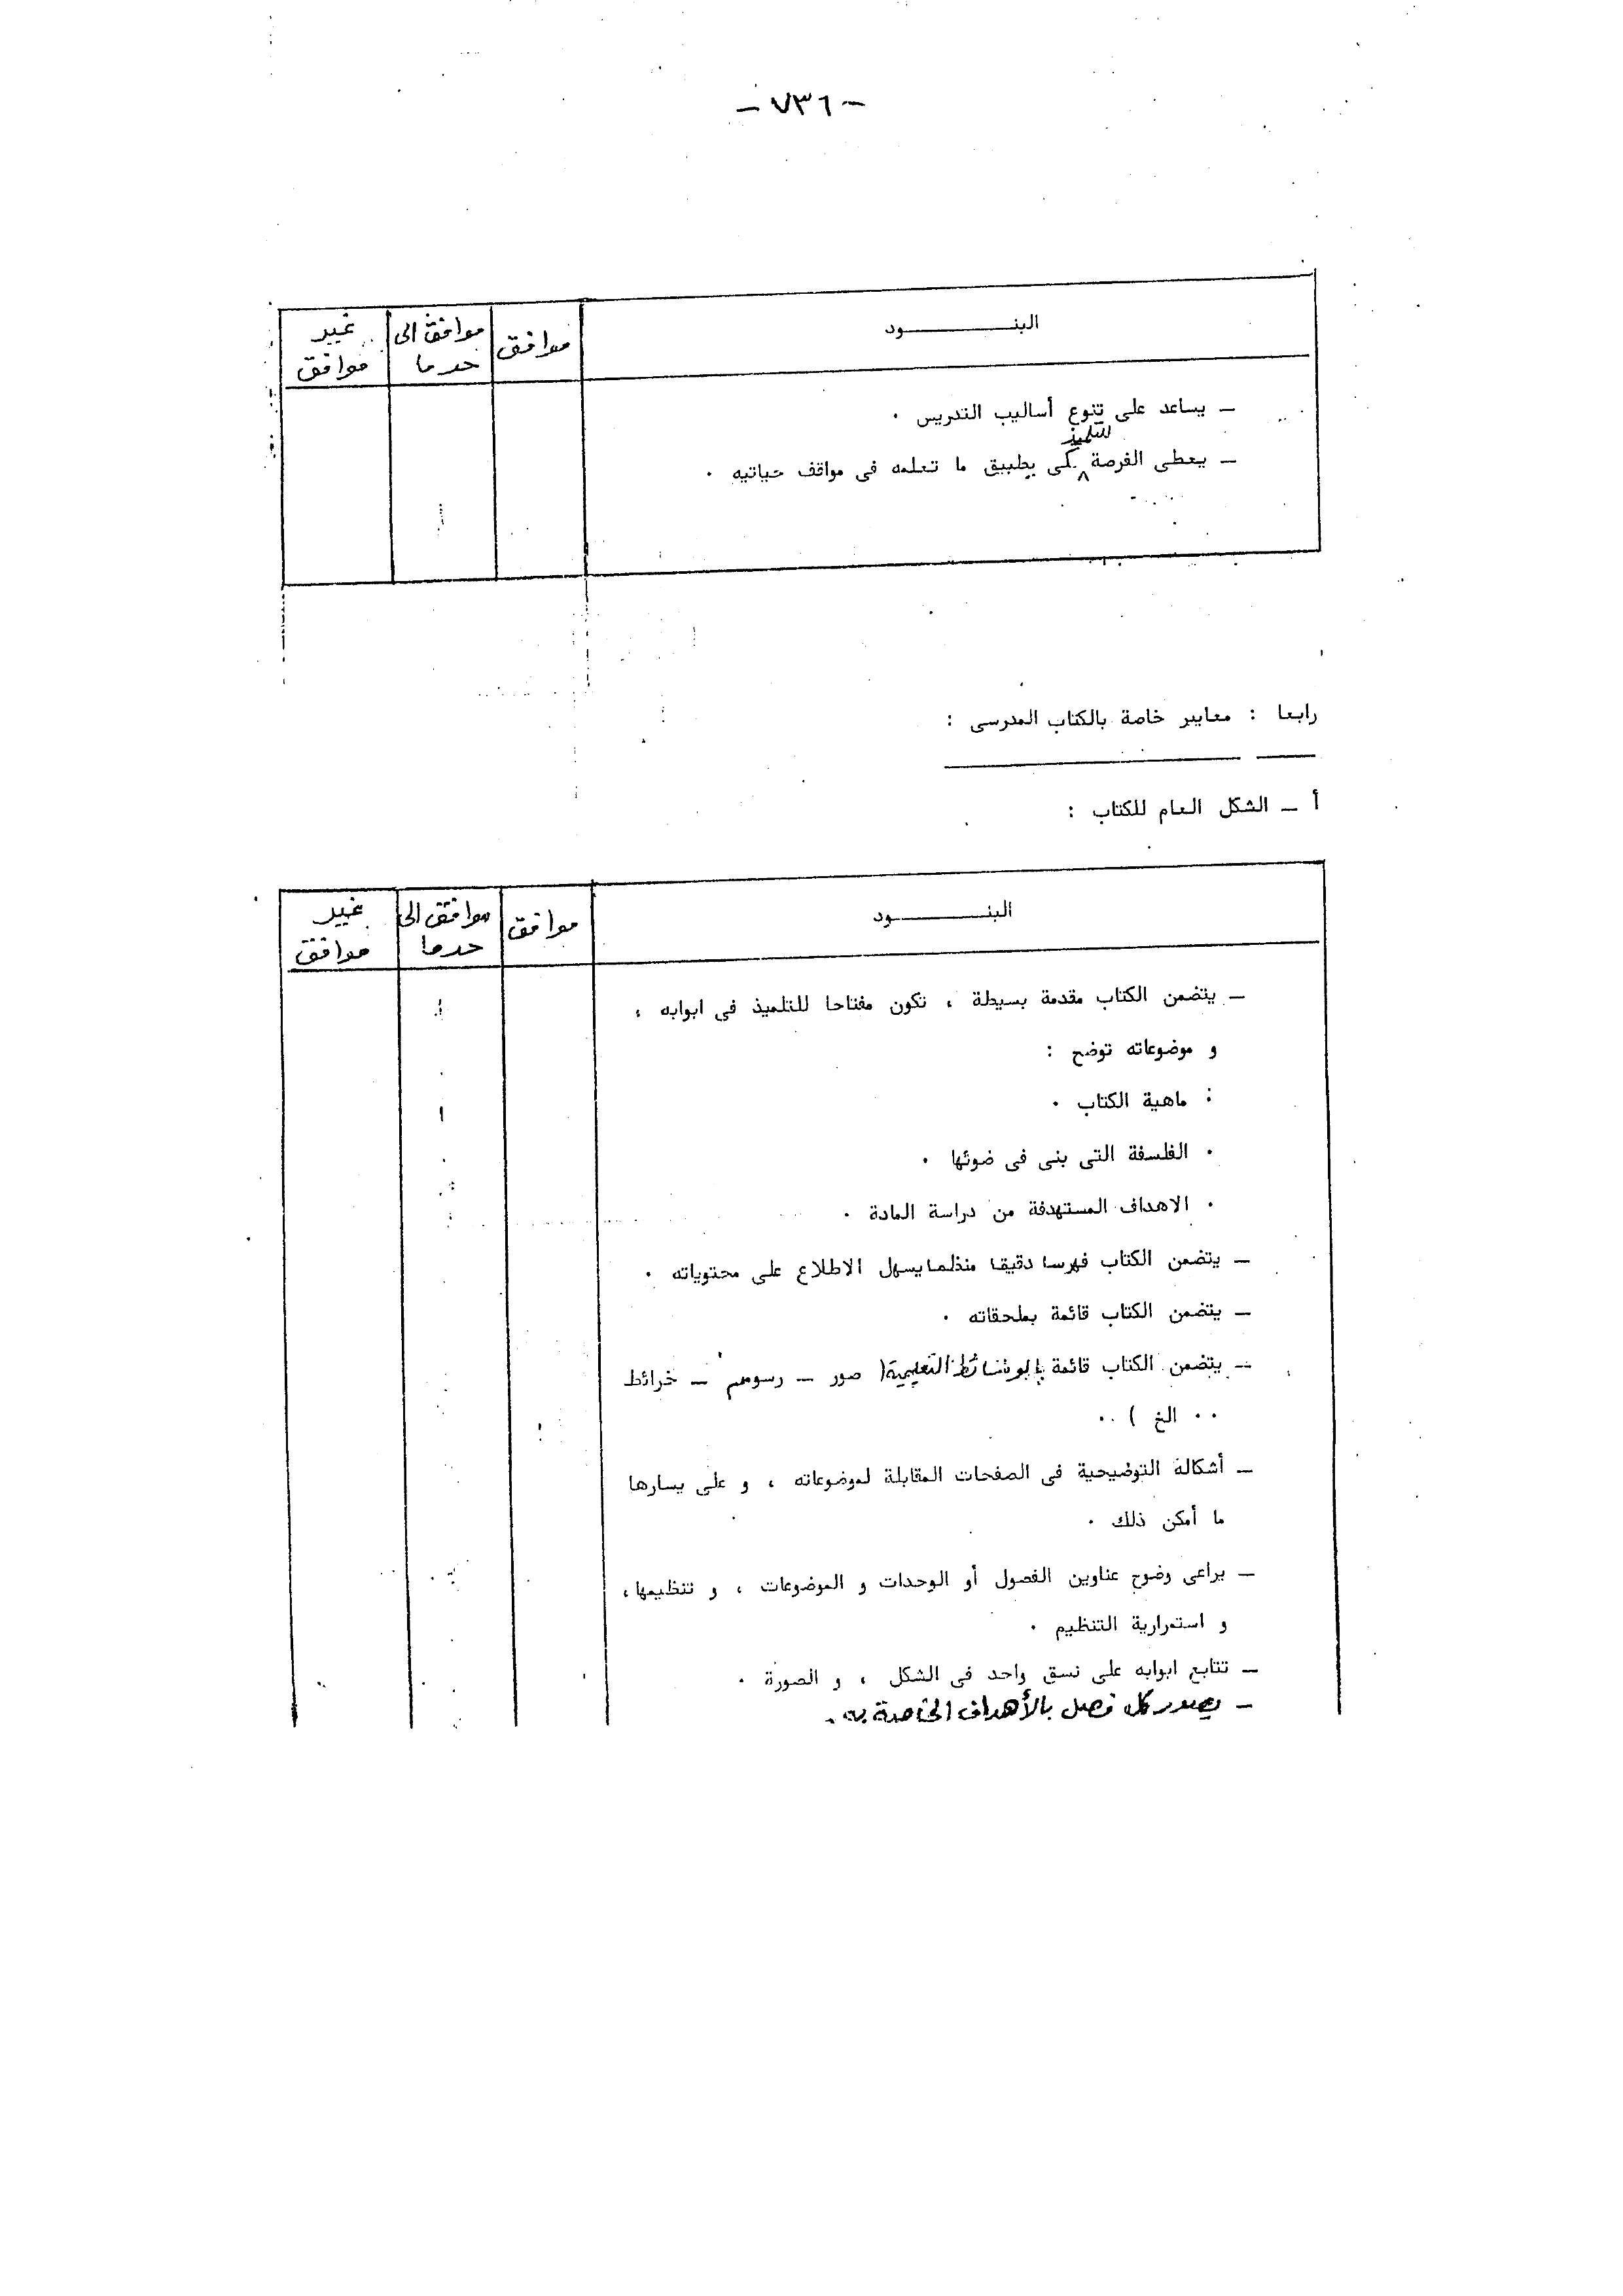 - ٧٣٦ -
البنــــــــــــود موافق موافق الى غير
حد ما موافق
ــ يساعد على تنوع أساليب التدريس ٠
للتلميذ
ــ يعطى الفرصة ٨ كى يطبيق ما تعلمه فى مواقف حياتيه ٠
رابعا : معايير خاصة بالكتاب المدرسى :
أ ــ الشكل العام للكتاب :
البنــــــــــــود موافق موافق الى غير
حد ما موافق
ــ يتضمن الكتاب مقدمة بسيطة ، تكون مفتاحا للتلميذ فى ابوابه ،
و موضوعاته توضح :
٠ ماهية الكتاب ٠
٠ الفلسفة التى بنى فى ضوئها ٠
٠ الاهداف المستهدفة من دراسة المادة ٠
ــ يتضمن الكتاب فهرسا دقيقا منظما يسهل الاطلاع على محتوياته ٠
ــ يتضمن الكتاب قائمة بملحقاته ٠
ــ يتضمن الكتاب قائمة بالوسائط التعليمية ( صور ــ رسوم ــ خرائط
٠٠ الخ ) ٠٠
ــ أشكالة التوضيحية فى الصفحات المقابلة لموضوعاته ، و على يسارها
ما أمكن ذلك ٠
ــ يراعى وضوح عناوين الفصول أو الوحدات و الموضوعات ، و تنظيمها ،
و استمرارية التنظيم ٠
ــ تتابع ابوابه على نسق واحد فى الشكل ، و الصورة ٠
ــ يصدر كل فصل بالأهداف الخاصة به .